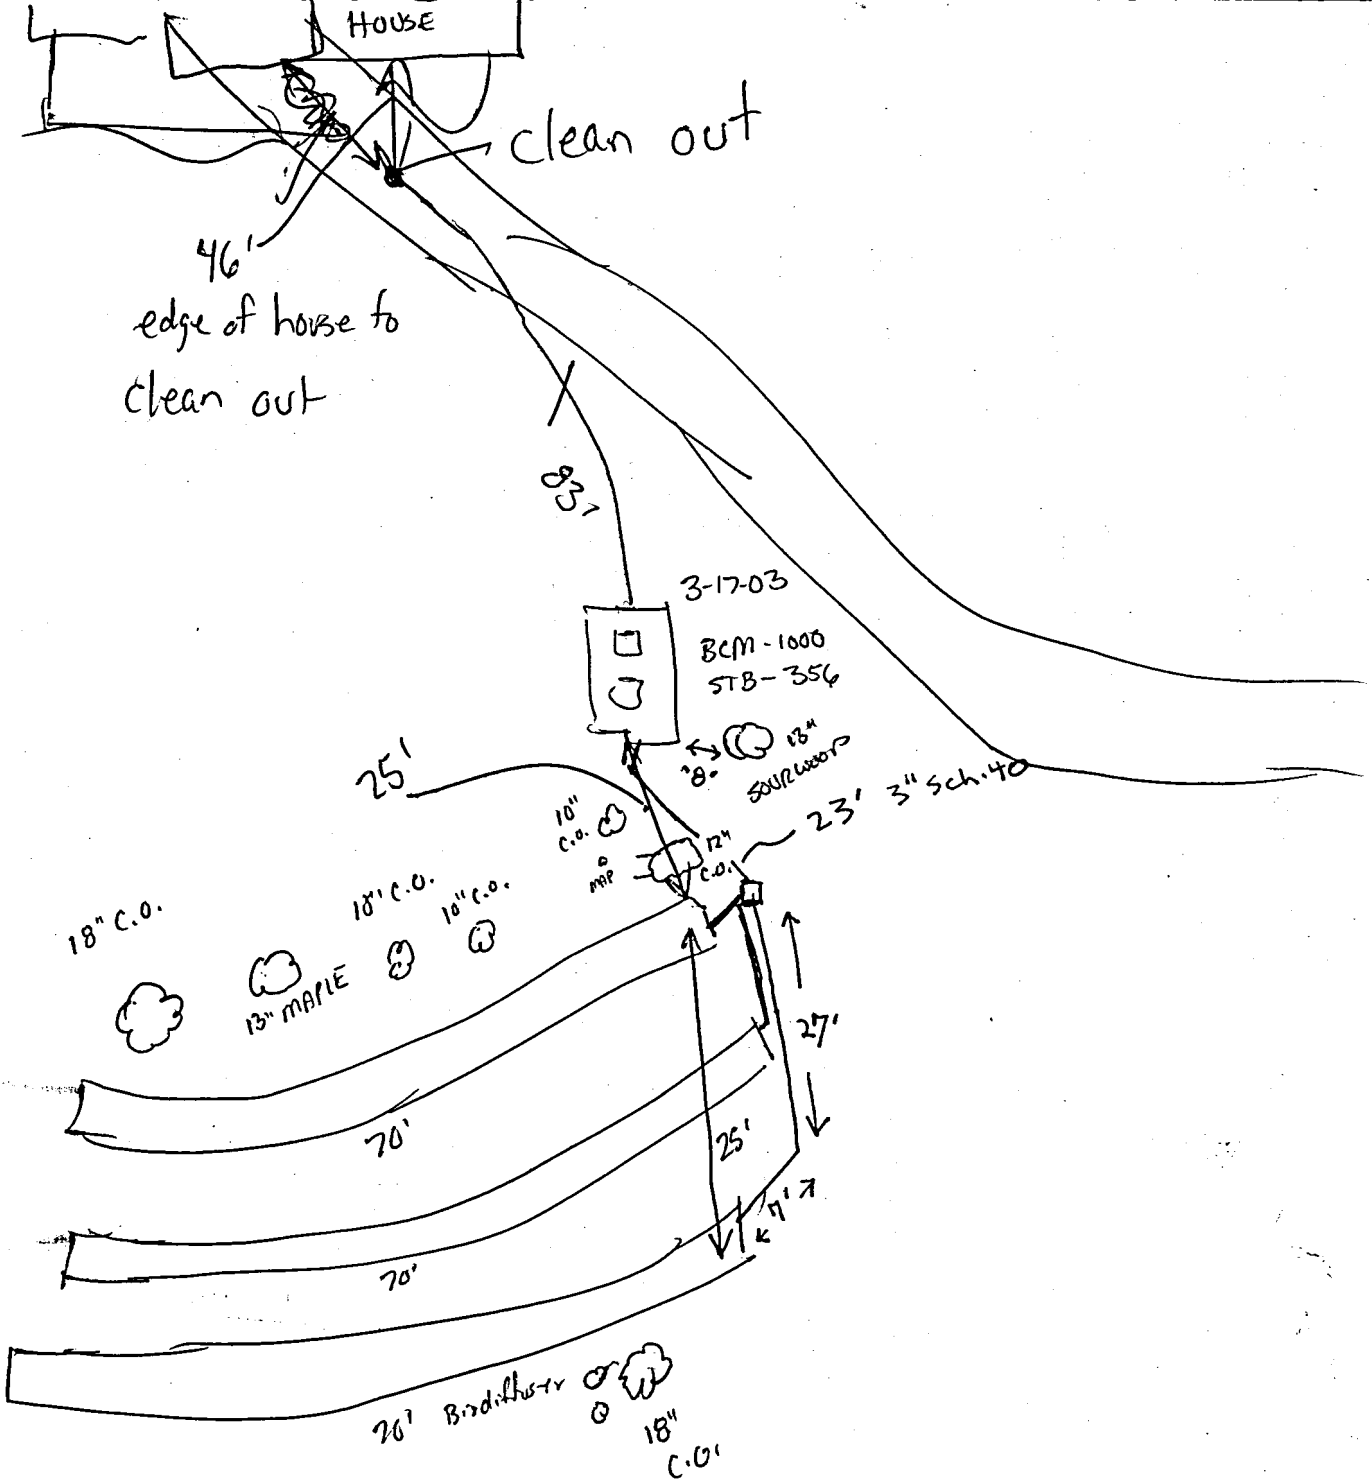 HOUSE
clean out
46'
edge of house to
clean out
83'
3-17-03
BCM-1000
STB-356
13"
SOURWOOD
8'
25'
10"
C.O.
MAP
12"
C.O.
23' 3" Sch.40
18" C.O.
13" MAPLE
10" C.O.
10" C.O.
27'
25'
7'
70'
70'
70' Biodiffuser
18"
C.O.